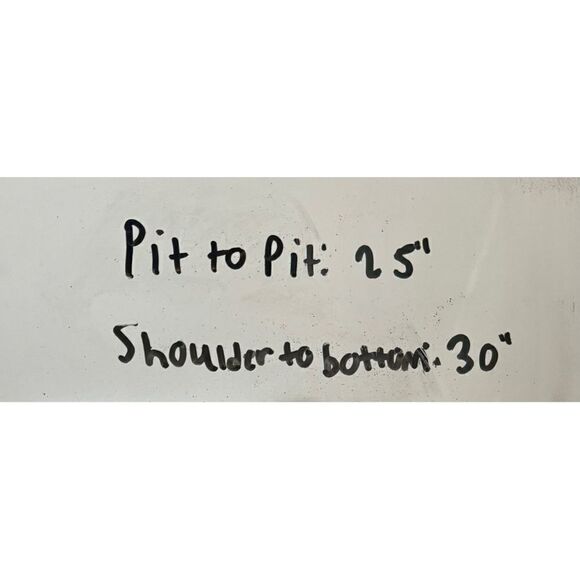 Pit to Pit: 25"
Shoulder to bottom: 30"